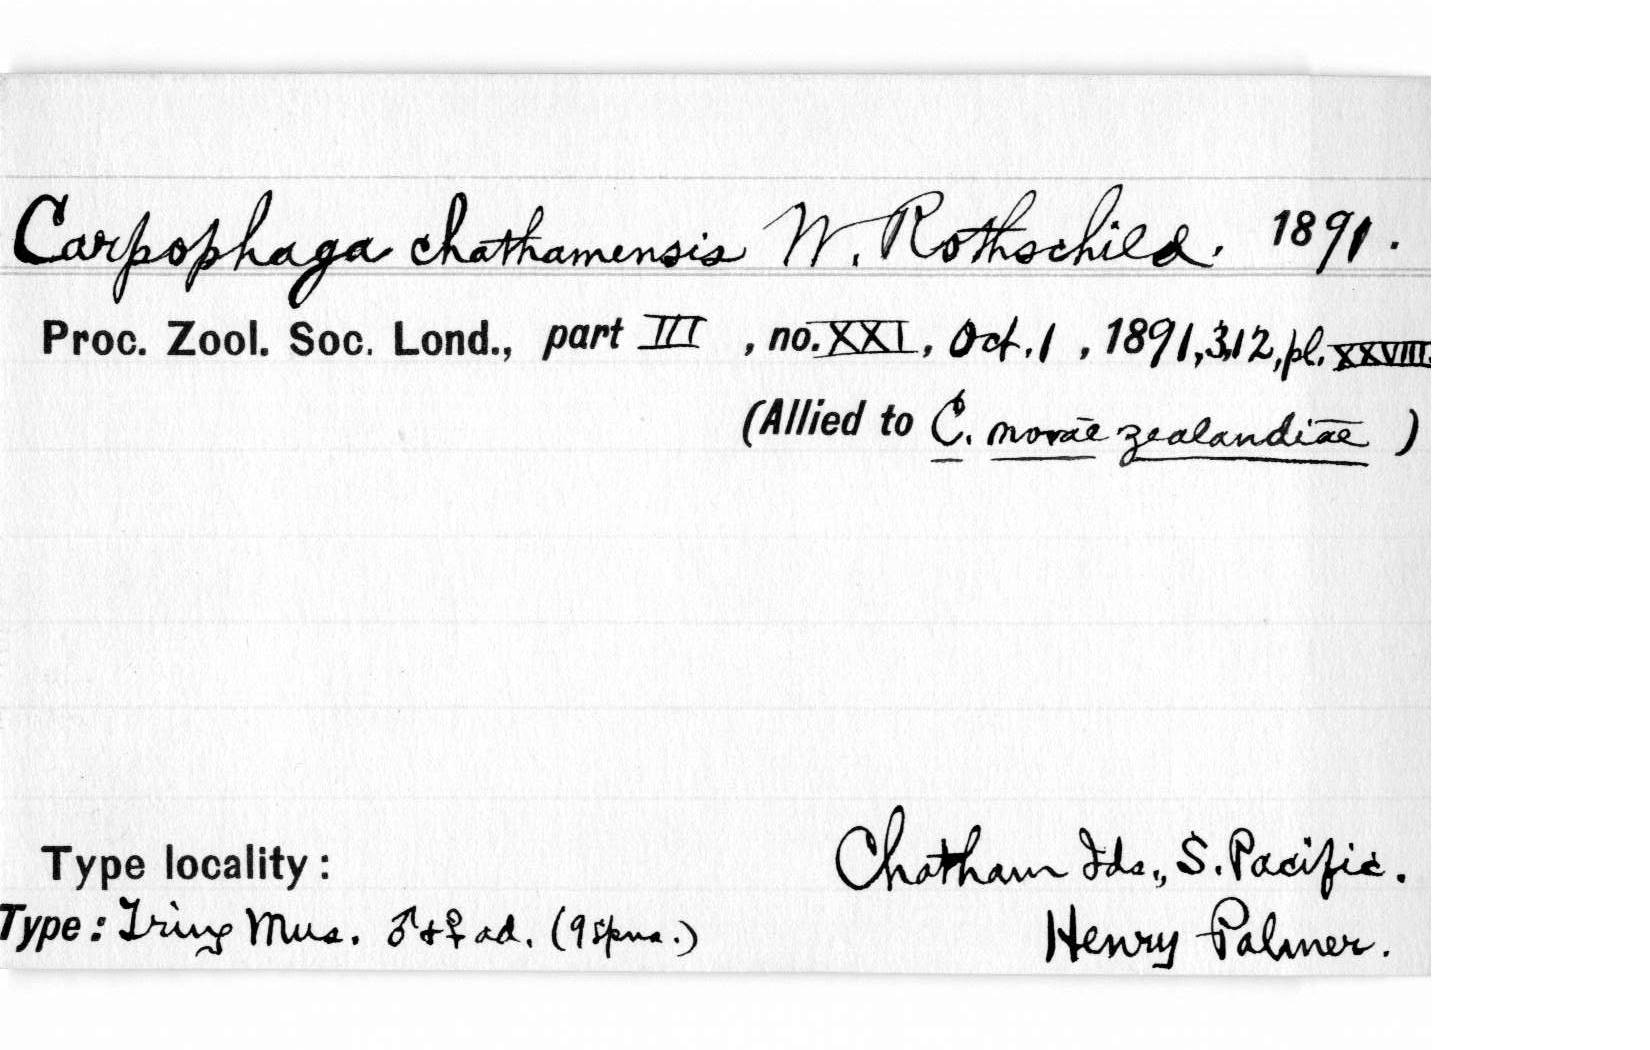 Carpophaga chathamensis W. Rothschild. 1891.
Proc. Zool. Soc. Lond., part III, no. XXI, Oct. 1, 1891, 312, pl. XXVIII.
(Allied to C. novae zealandiae)
Type locality: Chatham Ids., S. Pacific.
Type: Tring Mus. ♂ + ♀ ad. (9 spns.) Henry Palmer.